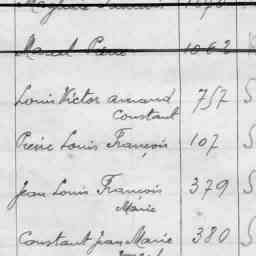 Marcel Pierre 1062
Louis Victor Armand 757 S
Constant
Pierre Louis François 107 S
Jean Louis François 379 S
Marie
Constant Jean Marie 380 S